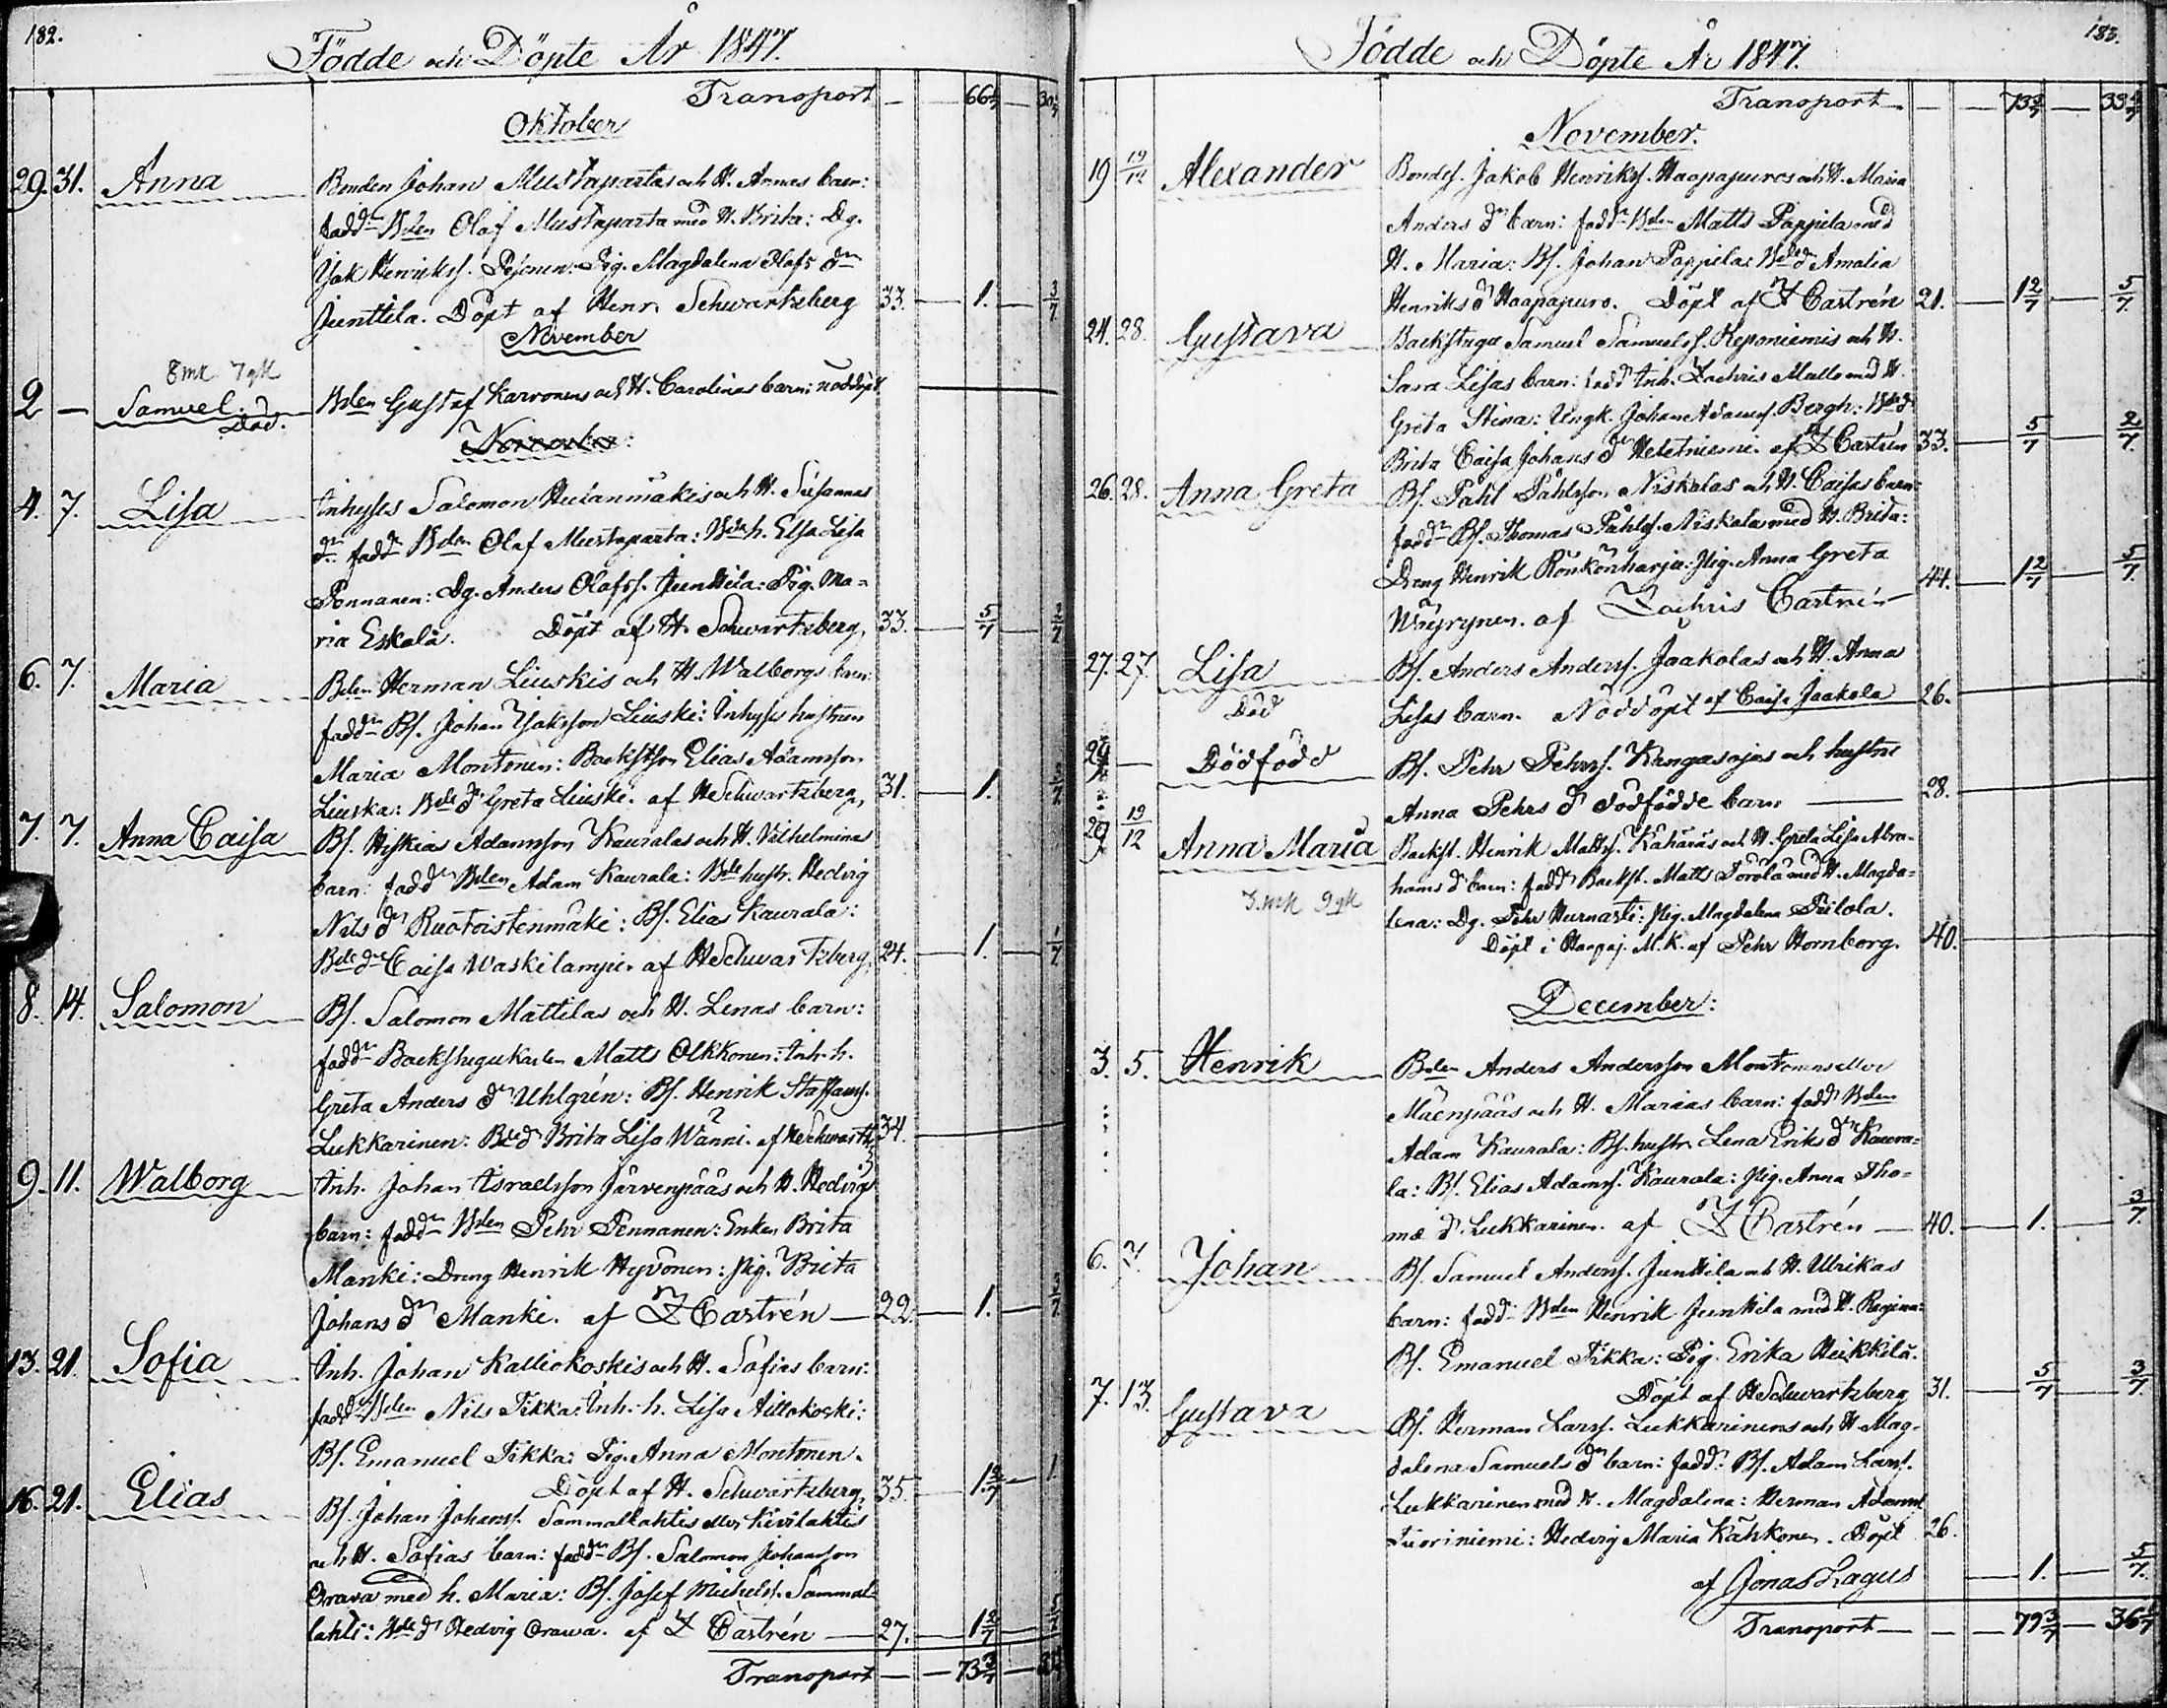 182.
Födde och Döpte År 1847.
Transport — — 66 — 30
Oktober
29. 31. Anna Bonden Johan Mustapartas och H. Annas barn:
fadd Bden Olaf Mustaparta med H. Brita: Dg.
Isak Henrikss. Pesonen: Pig. Magdalena Olafs dr
Junttila. Döpt af Henr. Schwartzberg 33. — 1. — 3/7
November
8 mk 7 qk
2 — Samuel. Bden Gustaf Karvonens och H. Carolinas barn: nöddöpt
Död.
November:
4. 7. Lisa Inhyses Salomon och H. Susannas
dr. fadd Bden Olaf Mustaparta: Bde h. Elsa Lisa
Pennanen: Dg. Anders Olafss. Junttila: Pig. Ma-
ria Eskola. Döpt af H. Schwartzberg, 33. — 5/7 — 2/7
6. 7. Maria Bden Herman Liuskis och H. Walborgs barn:
fadd Bs. Johan Isaksson Liuski: Inhyses hustrun
Maria Montonen: Backstson Elias Adamsson
Liuska: Bde dr Greta Liuski. af HSchwartzberg, 31. — 1. — 3/7
7. 7. Anna Caisa Bs. Hiskias Adamsson Kauralas och H. Vilhelmina
barn: fadd Bden Adam Kaurala: Bde hustr. Hedvig
Nils dr Ruotoistenmäki: Bs. Elias Kaurala:
Bde dr Caisa Waskilampi. af HSchwartzberg, 24. — 1. — 1/7
8. 14. Salomon Bs. Salomon Mattilas och H. Lenas barn:
fadd Backstugukarlen Matts Olkkonen: Inh. h.
Greta Anders dr Uhlgrén: Bs. Henrik Staffanss.
Lukkarinen: Bde dr Brita Lisa Wänni. af HSchwartz 34.
9. 11. Walborg Inh. Johan Israelsson Järvenpääs och H. Hedvigs
barn: fadd Bden Pehr Pennanen: Enkan Brita
Manki: Dreng Henrik Hyvönen: Pig. Brita
Johans dr Manki. af Z Castrén — 22. — 1. — 3/7
13. 21. Sofia Inh. Johan Kalliokoskis och H. Sofias barn:
fadd Bden Nils Tikka: Inh. h. Lisa Aittokoski:
Bs. Emanuel Tikka: Pig. Anna Montonen.
Döpt af H. Schwartzberg, 35. — 1 2/7 — 1.
16. 21. Elias Bs. Johan Johanss. Sammallahtis eller Kivilahtis
och H. Sofias barn: fadd Bs. Salomon Johansson
Orava med h. Maria: Bs. Josef Michelss. Sammal-
lahti: Bde dr Hedvig Orawa. af Z Castrén — 27. — 1 2/7 — 5/7
Transport — — 73 3/7
183.
Födde och Döpte År 1847.
Transport. — — 73 3/7 — 33 4/7
November.
19 19/12 Alexander Bondes. Jakob Henrikss. Haapapuros och H. Maria
Anders dr barn: fadd Bden Matts Pappila med
H. Maria: Bs. Johan Pappila: Bde dr Amalia
Henriks dr Haapapuro. Döpt af Z Castrén 21. — 1 2/7 — 5/7.
24. 28. Gustava Backstuga Samuel Samuelss. Reponiemis och H.
Sara Lisas barn: fadd Inh. Zachris Malle med H.
Greta Stina: Yngl. Johan Adamss. Bergh: Bde dr
Brita Caisa Johans dr Hetetniemi. af Z Castrén 33. — 5/7 — 2/7.
26. 28. Anna Greta Bs. Påhl Påhlsson Niskalas och H. Caisas barn
fadd Bs. Thomas Påhlss. Niskala med H. Brita:
Dreng Henrik Rönkönharju: Pig. Anna Greta 44. — 1 2/7 — 5/7.
Wäyrynen. af Zachris Castrén
27. 27. Lisa Bs. Anders Anderss. Jaakolas och H. Anna
Död Lisas barn. Nöddöpt af Caisa Jaakola 26.
29 — Dödfödd Bs. Pehr Pehrss. Kangasojas och hustru
Anna Pehrs dr dödfödde barn — 28.
29 19/12 Anna Maria Backst. Henrik Mattss. Kähäräs och H. Greta Lisa Abra-
hams dr barn: fadd Backst. Matts Törölä med H. Magda-
3. mk 9 qk lena: Dg. Pehr Hurnasti: Pig. Magdalena Piilola.
Döpt i Haapaj. M.K. af Pehr Hornborg. 40.
December:
3. 5. Henrik Bden Anders Andersson Montonens eller
Mäenpääs och H. Marias barn: fadd Bden
Adam Kaurala: Bs. hustr. Lena Eriks dr Kaura-
la: Bs. Elias Adamss. Kaurala: Pig. Anna Tho-
mæ dr Lukkarinen. af Z Castrén — 40. — 1. — 3/7.
6. 7. Johan Bs. Samuel Anderss. Junttila och H. Ulrikas
barn: fadd Bden Henrik Junttila med H. Regina:
Bs. Emanuel Tikka: Pig. Erika Heikkilä.
Döpt af HSchwartzberg 31. — 5/7 — 3/7.
7. 13. Gustava Bs. Herman Larss. Lukkarinens och H. Mag-
dalena Samuels dr barn: fadd: Bs. Adam Larss.
Lukkarinen med H. Magdalena: Herman Adamss
: Hedvig Maria Kähkönen. Döpt 26.
af Jonas Lagus — 1. — 5/7.
Transport — — 79 3/7 — 36